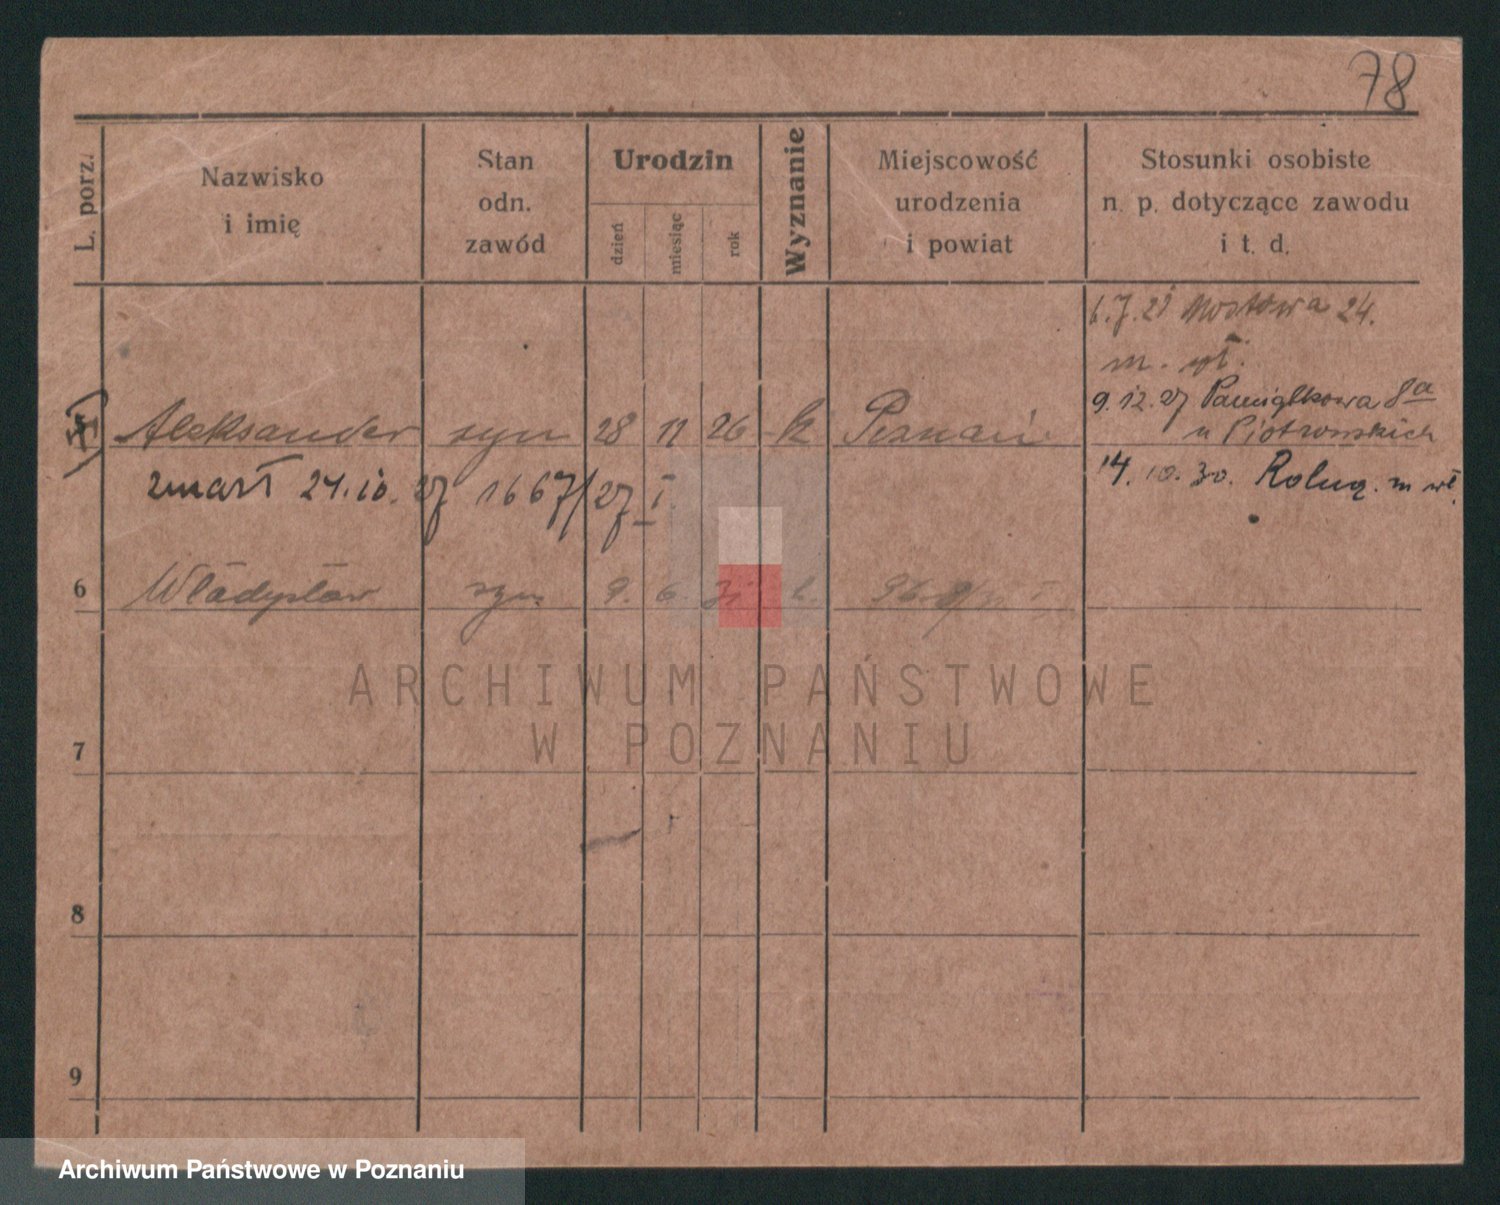 78
L. porz.
Nazwisko
i imię
Stan
odn.
zawód
Urodzin
dzień
miesiąc
rok
Wyznanie
Miejscowość
urodzenia
i powiat
Stosunki osobiste
n. p. dotyczące zawodu
i t. d.
6.7.21 Mostowa 24.
m. wł.
9.12.27 Pamiątkowa 8a
u Piotrowskich
Aleksander syn 28 11 26 k Poznań
14.10.30. m wł.
zmarł 24.10.27 1667/27 I.
6 Władysław syn 9. 6. 31 k.
ARCHIWUM PAŃSTWOWE
W POZNANIU
7
8
9
Archiwum Państwowe w Poznaniu